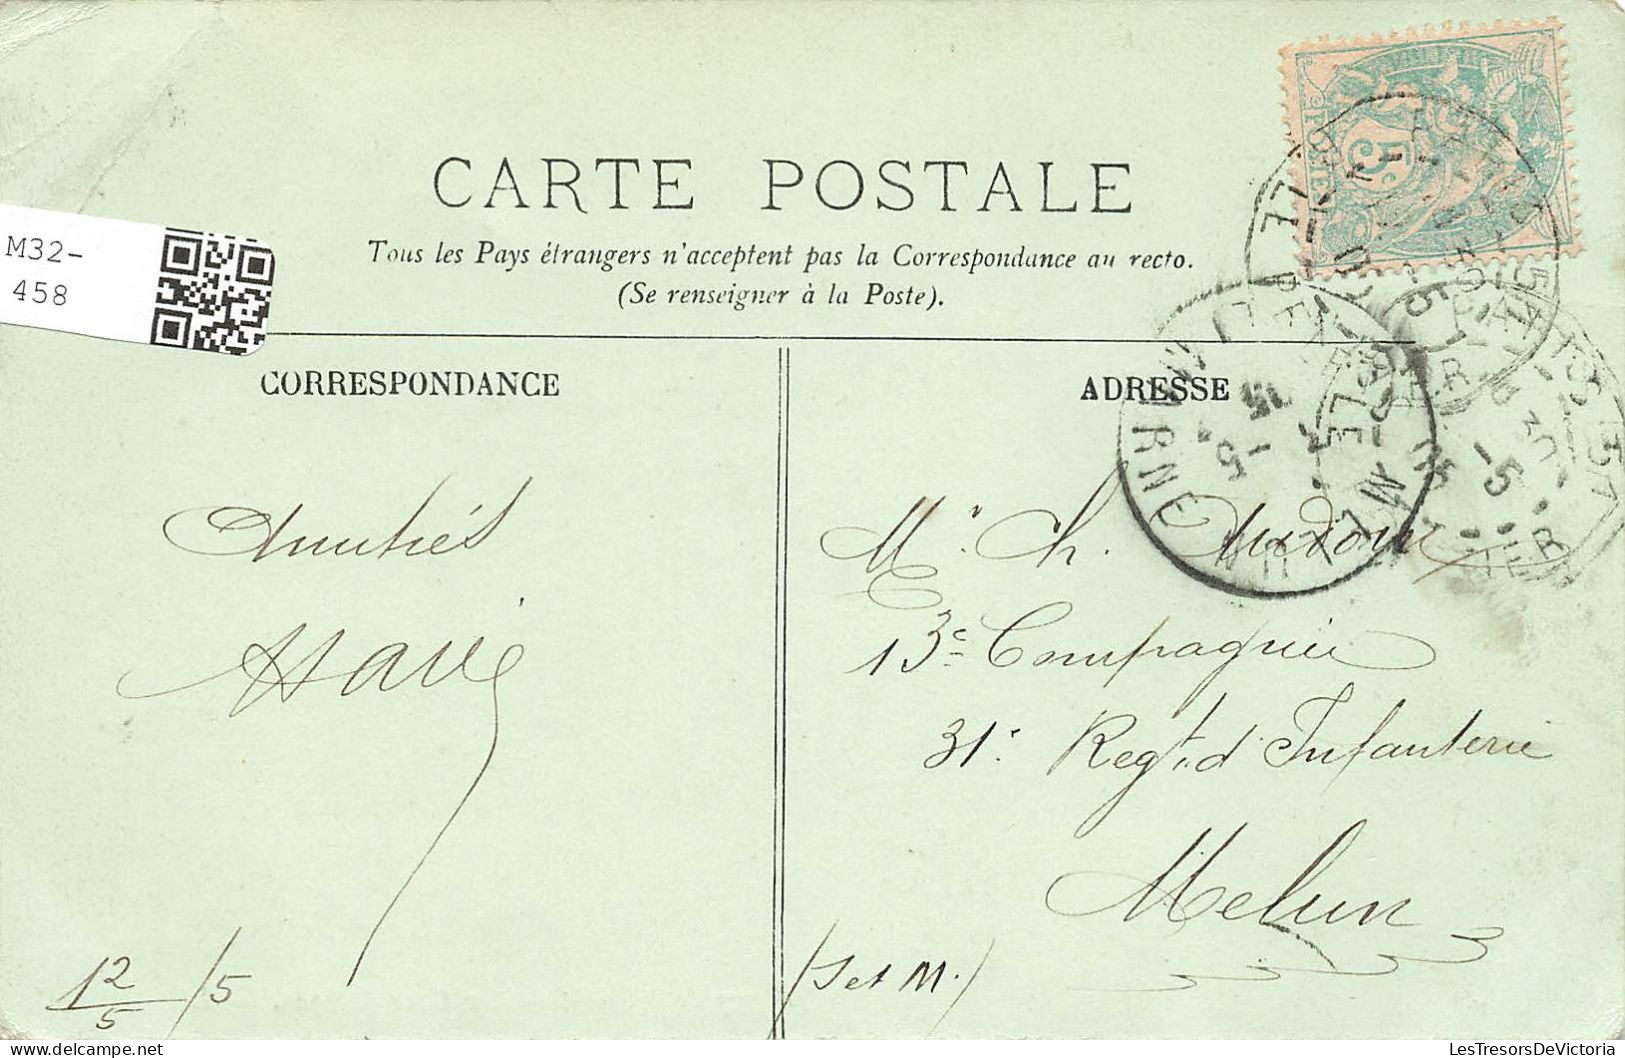 CARTE POSTALE
Tous les Pays étrangers n'acceptent pas la Correspondance au recto.
(Se renseigner à la Poste).
M32-
458
5c
CORRESPONDANCE
Amitiés
12/5/5
ADRESSE
Mr. Ch.
13e Compagnie
31e Regt. d'Infanterie
Melun
(S et M.)
LesTresorsDeVictoria